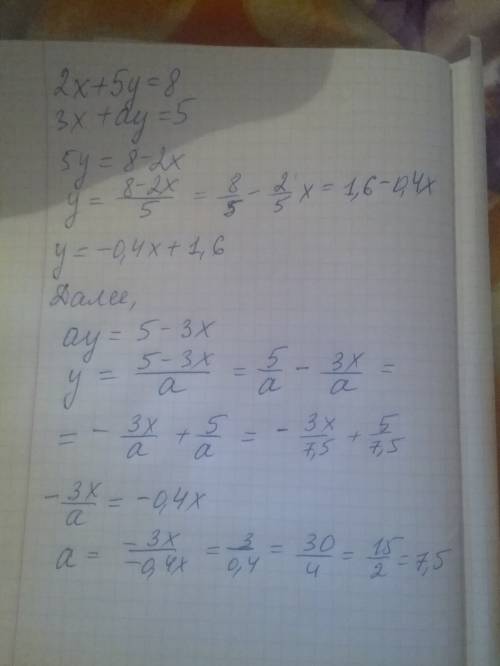 2x+5y=8
3x+ay=5
5y=8-2x
y = \frac{8-2x}{5} = \frac{8}{5} - \frac{2}{5}x = 1,6-0,4x
y=-0,4x+1,6
Далее,
ay=5-3x
y = \frac{5-3x}{a} = \frac{5}{a} - \frac{3x}{a} =
= -\frac{3x}{a} + \frac{5}{a} = -\frac{3x}{7,5} + \frac{5}{7,5}
-\frac{3x}{a} = -0,4x
a = \frac{-3x}{-0,4x} = \frac{3}{0,4} = \frac{30}{4} = \frac{15}{2} = 7,5